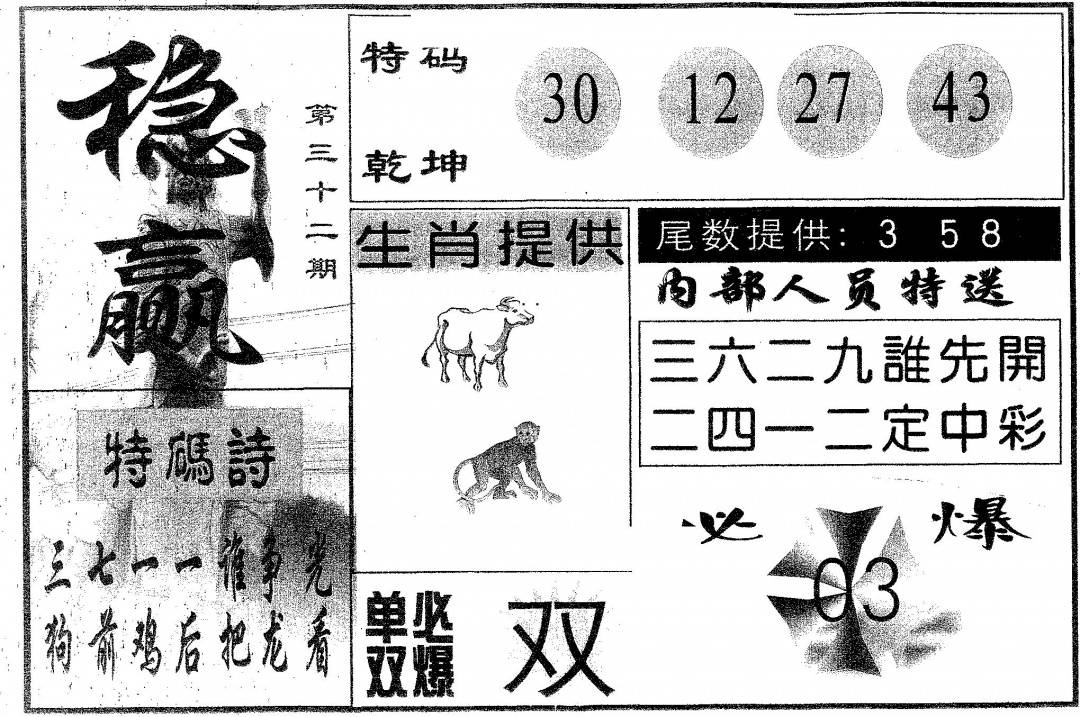 稳赢
第三十二期
特码
乾坤
30 12 27 43
生肖提供
尾数提供: 3 5 8
内部人员特送
三六二九誰先開
二四一二定中彩
特碼詩
三七一一谁争光
狗前鸡后把龙看
单双
必爆
双
必爆
03